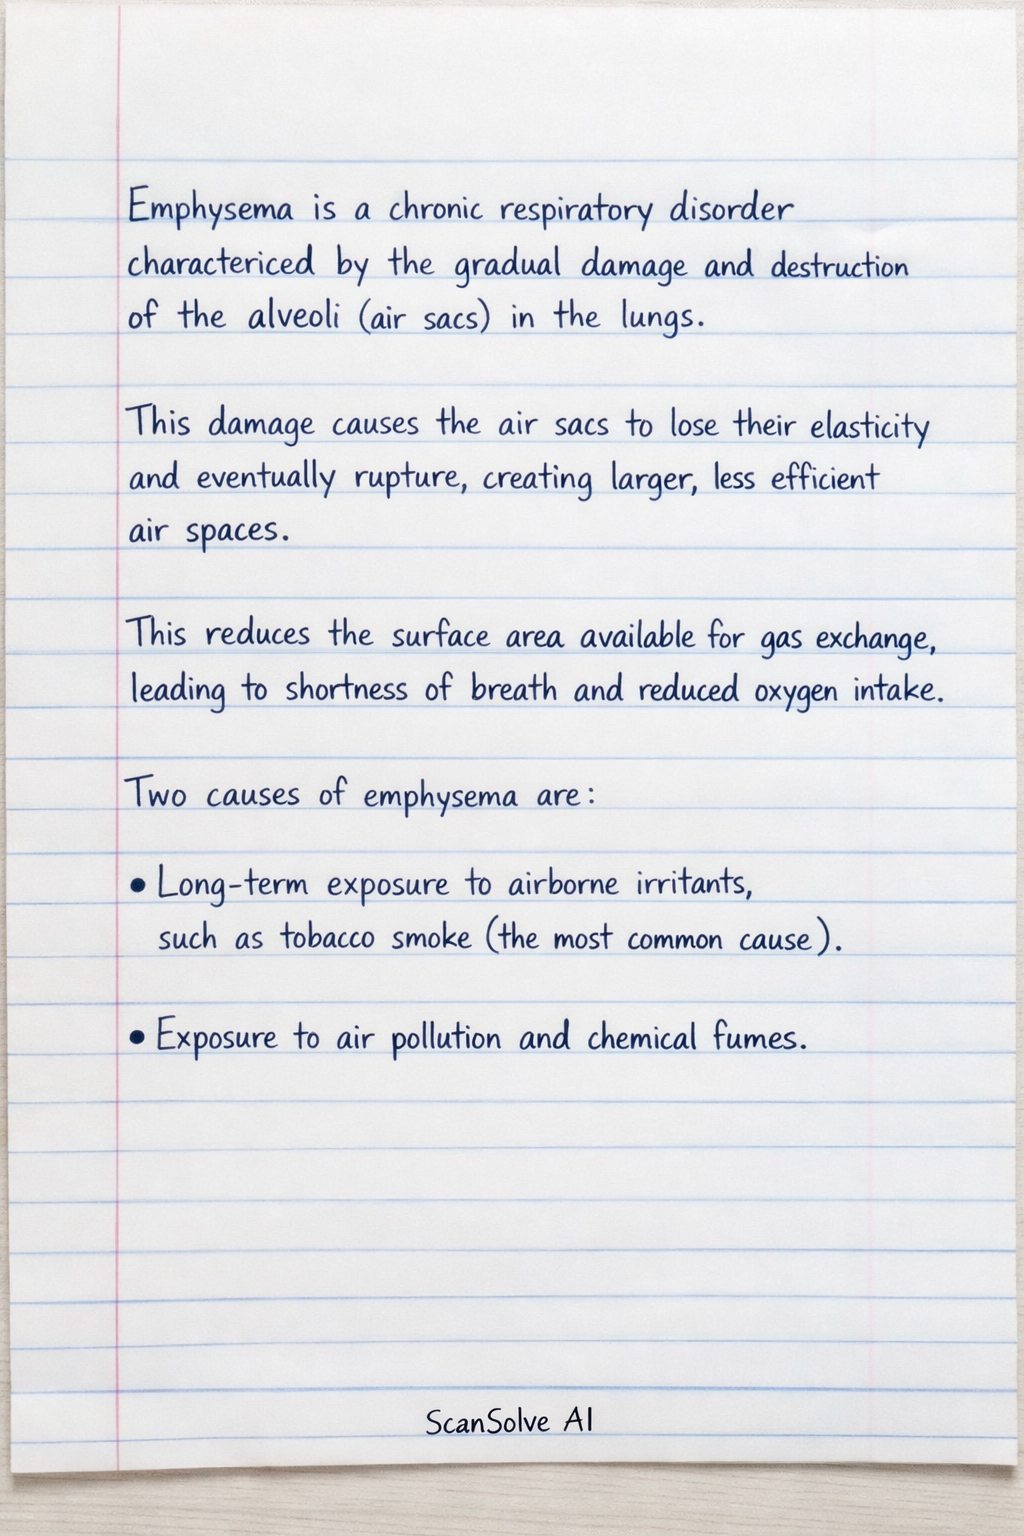 Emphysema is a chronic respiratory disorder
charactericed by the gradual damage and destruction
of the alveoli (air sacs) in the lungs.
This damage causes the air sacs to lose their elasticity
and eventually rupture, creating larger, less efficient
air spaces.
This reduces the surface area available for gas exchange,
leading to shortness of breath and reduced oxygen intake.
Two causes of emphysema are:
• Long-term exposure to airborne irritants,
such as tobacco smoke (the most common cause).
• Exposure to air pollution and chemical fumes.
ScanSolve AI